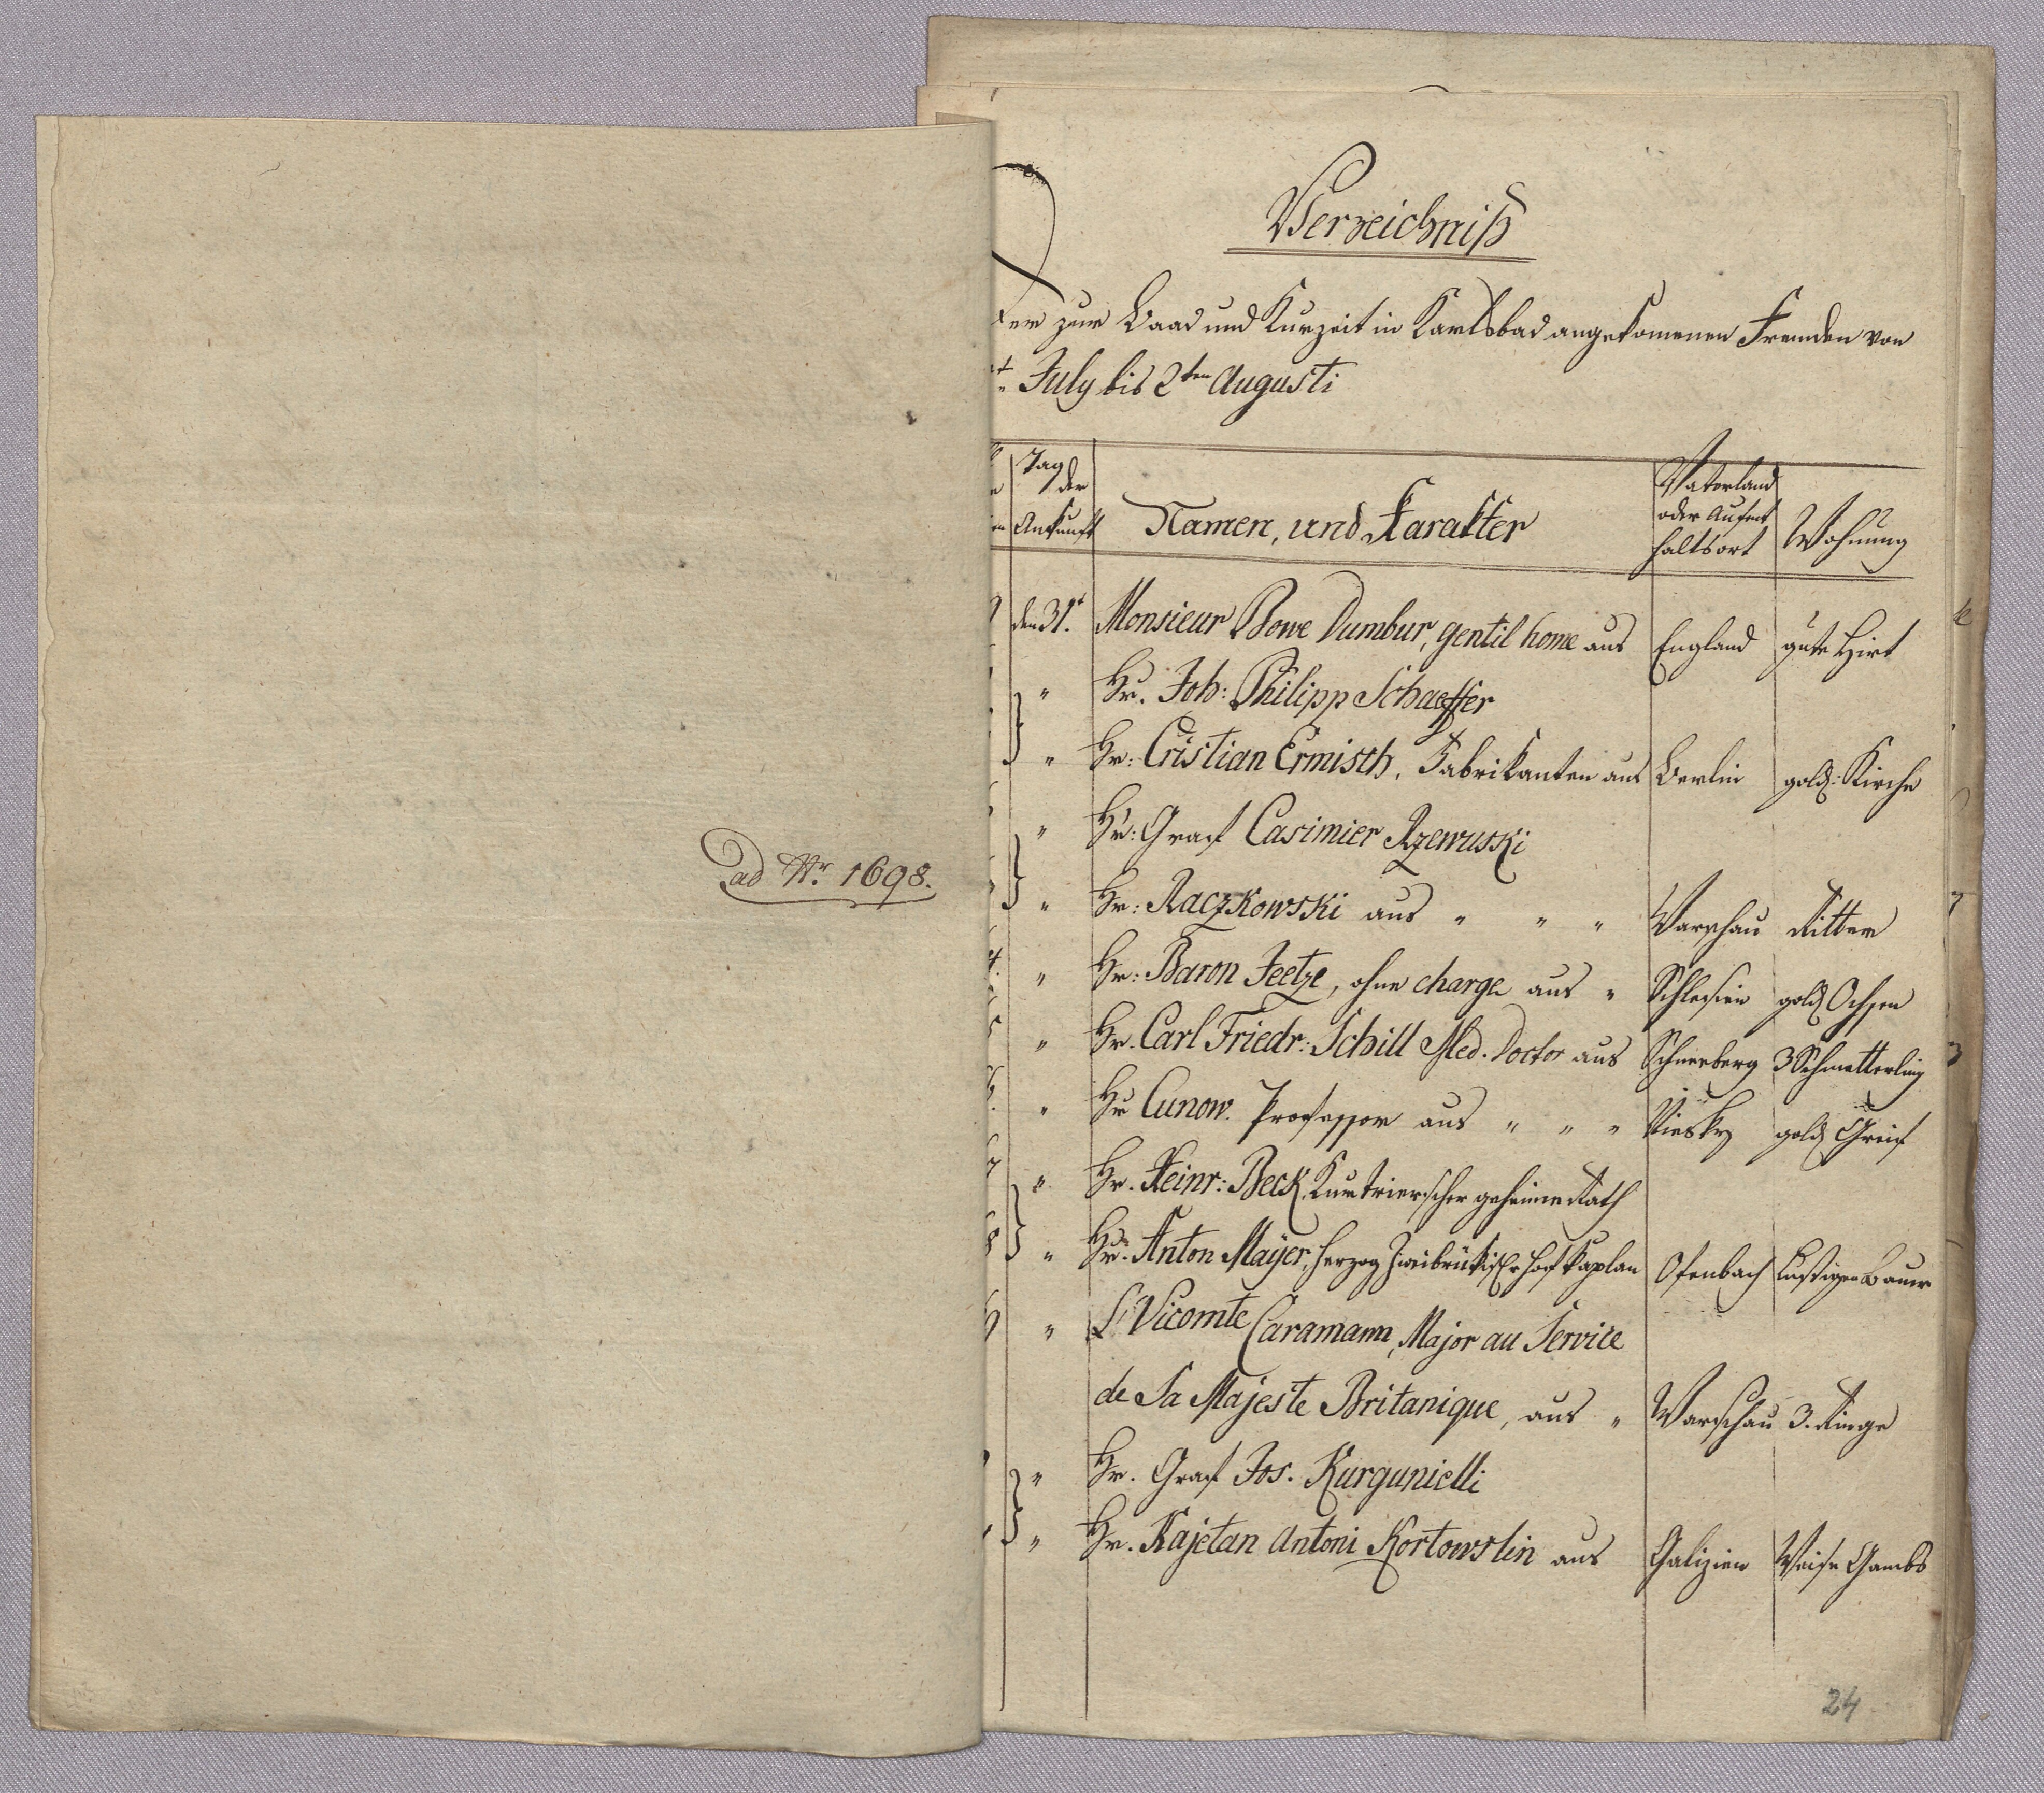 ad Nr. 1698.
Verzeichniß
der zur Baad und Kurzeit in Karlsbad angekomenen Fremden von
July bis 2ten Augusti
Tag der Ankunft
Namen, und Karakter
Vaterland oder Aufent haltsort
Wohnung
den 31t. Monsieur Bowe Dumbur, gentil home aus England gute Hirt
" Hr. Joh: Philipp Schaeffer
" Hr: Cristian Ermisch, Fabrikanten aus Berlin gold: Kirche
" Hr: Graf Casimier Rzewuski
" Hr: Raczkowski aus " " " Warschau Ritter
" Hr: Baron Jeetze, ohne charge aus " Schlesien gold Ochsen
" Hr. Carl Friedr: Schill Med. Doctor aus Schneeberg 3 Schmetterling
" Hr Cunow. Professor aus " " " Niesky gold Greif
" Hr. Heinr: Beck, Kurtrierscher geheime Rath
" Hr. Anton Mayer, Herzog Zweibrükischer Hofkaplan Ofenbach Lustigen Bauer
" Vicomte Caramann, Major au Service
de Sa Majeste Britanique, aus " Warschau 3. Ringe
" Hr. Graf Jos. Kurgunielli
" Hr. Kajetan Antoni Kortowslin aus Galizien Weise Gambs
24